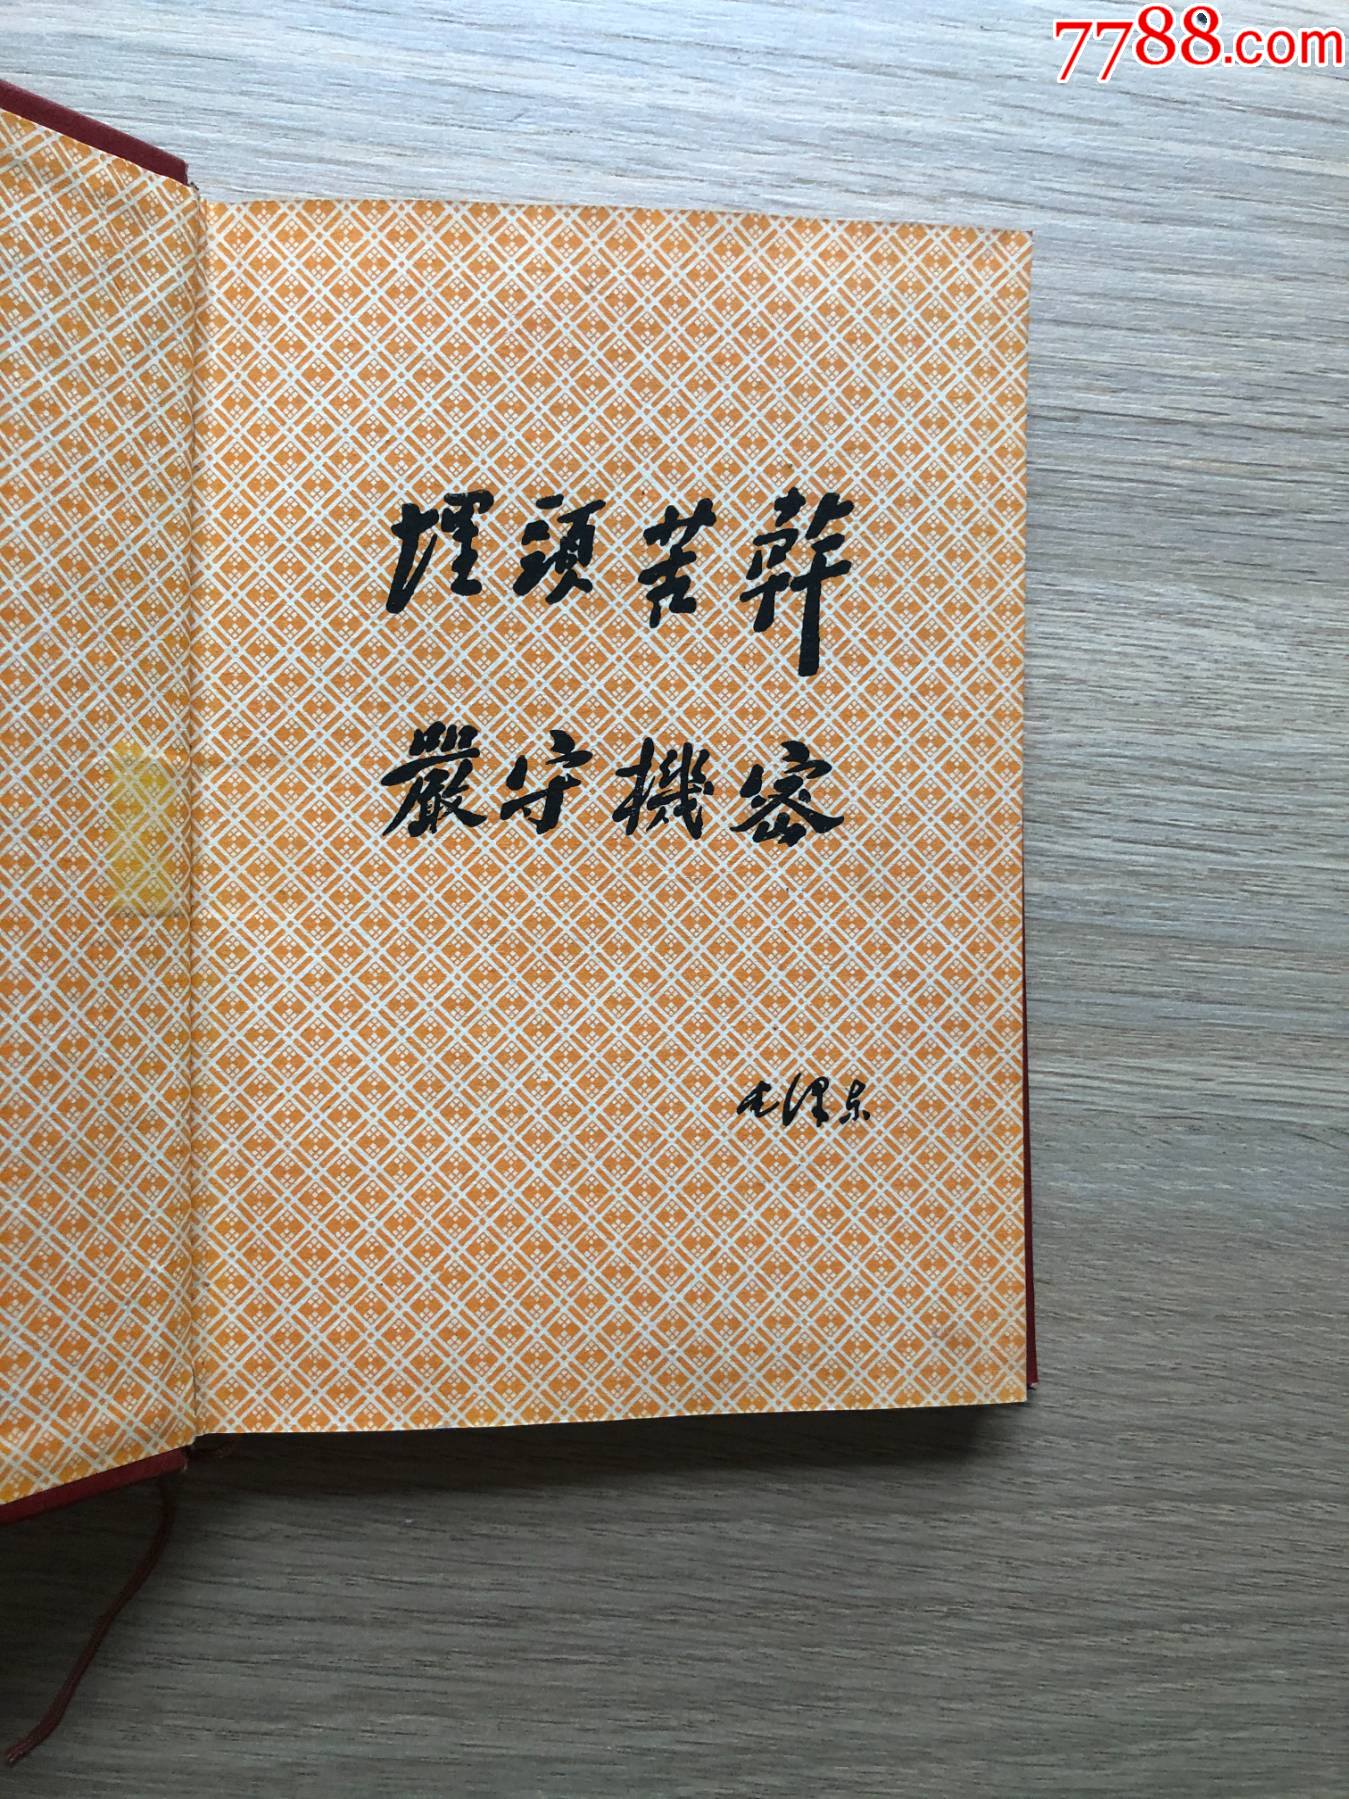 7788.com
埋頭苦幹
嚴守機密
毛澤东